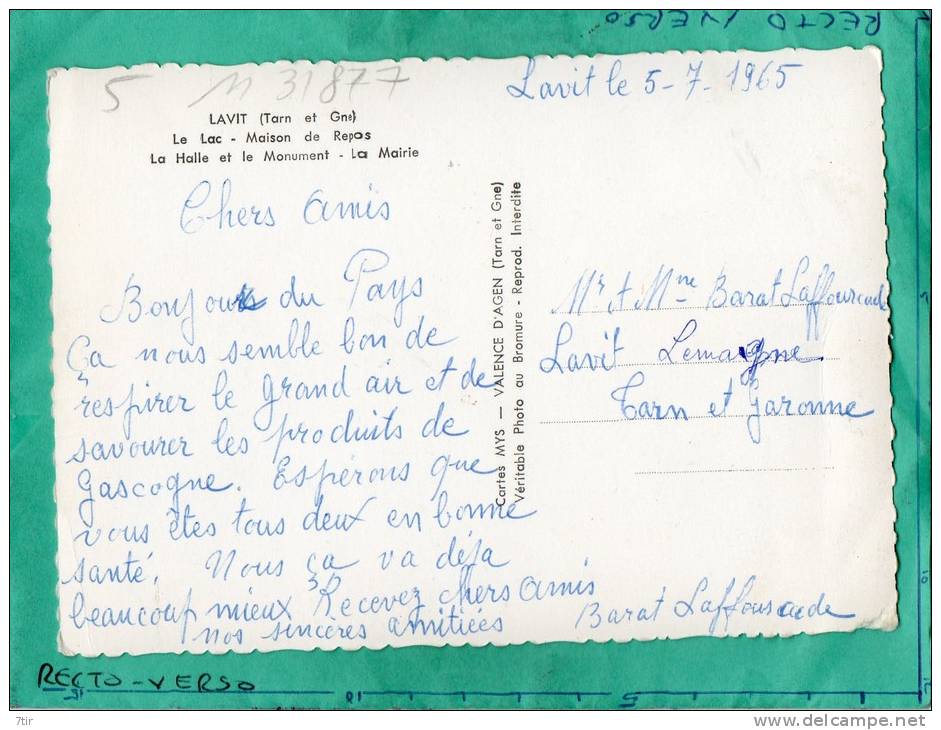 RECTO VERSO
5 M 31877
Lavit le 5-7-1965
LAVIT (Tarn et Gne)
Le Lac - Maison de Repos
La Halle et le Monument - La Mairie
Chers Amis
Bonjour du Pays
Ça nous semble bon de
respirer le grand air et de
savourer les produits de
Gascogne. Espérons que
vous êtes tous deux en bonne
santé. Nous ça va déja
beaucoup mieux Recevez chers amis
nos sincères amitiées
Barat Laffourcade
Cartes MYS — VALENCE D'AGEN (Tarn et Gne)
Véritable Photo au Bromure - Reprod. Interdite
Mr & Mme Barat Laffourcade
Lavit Lomagne
Tarn et Garonne
RECTO-VERSO
15 10 5
7tir
www.delcampe.net